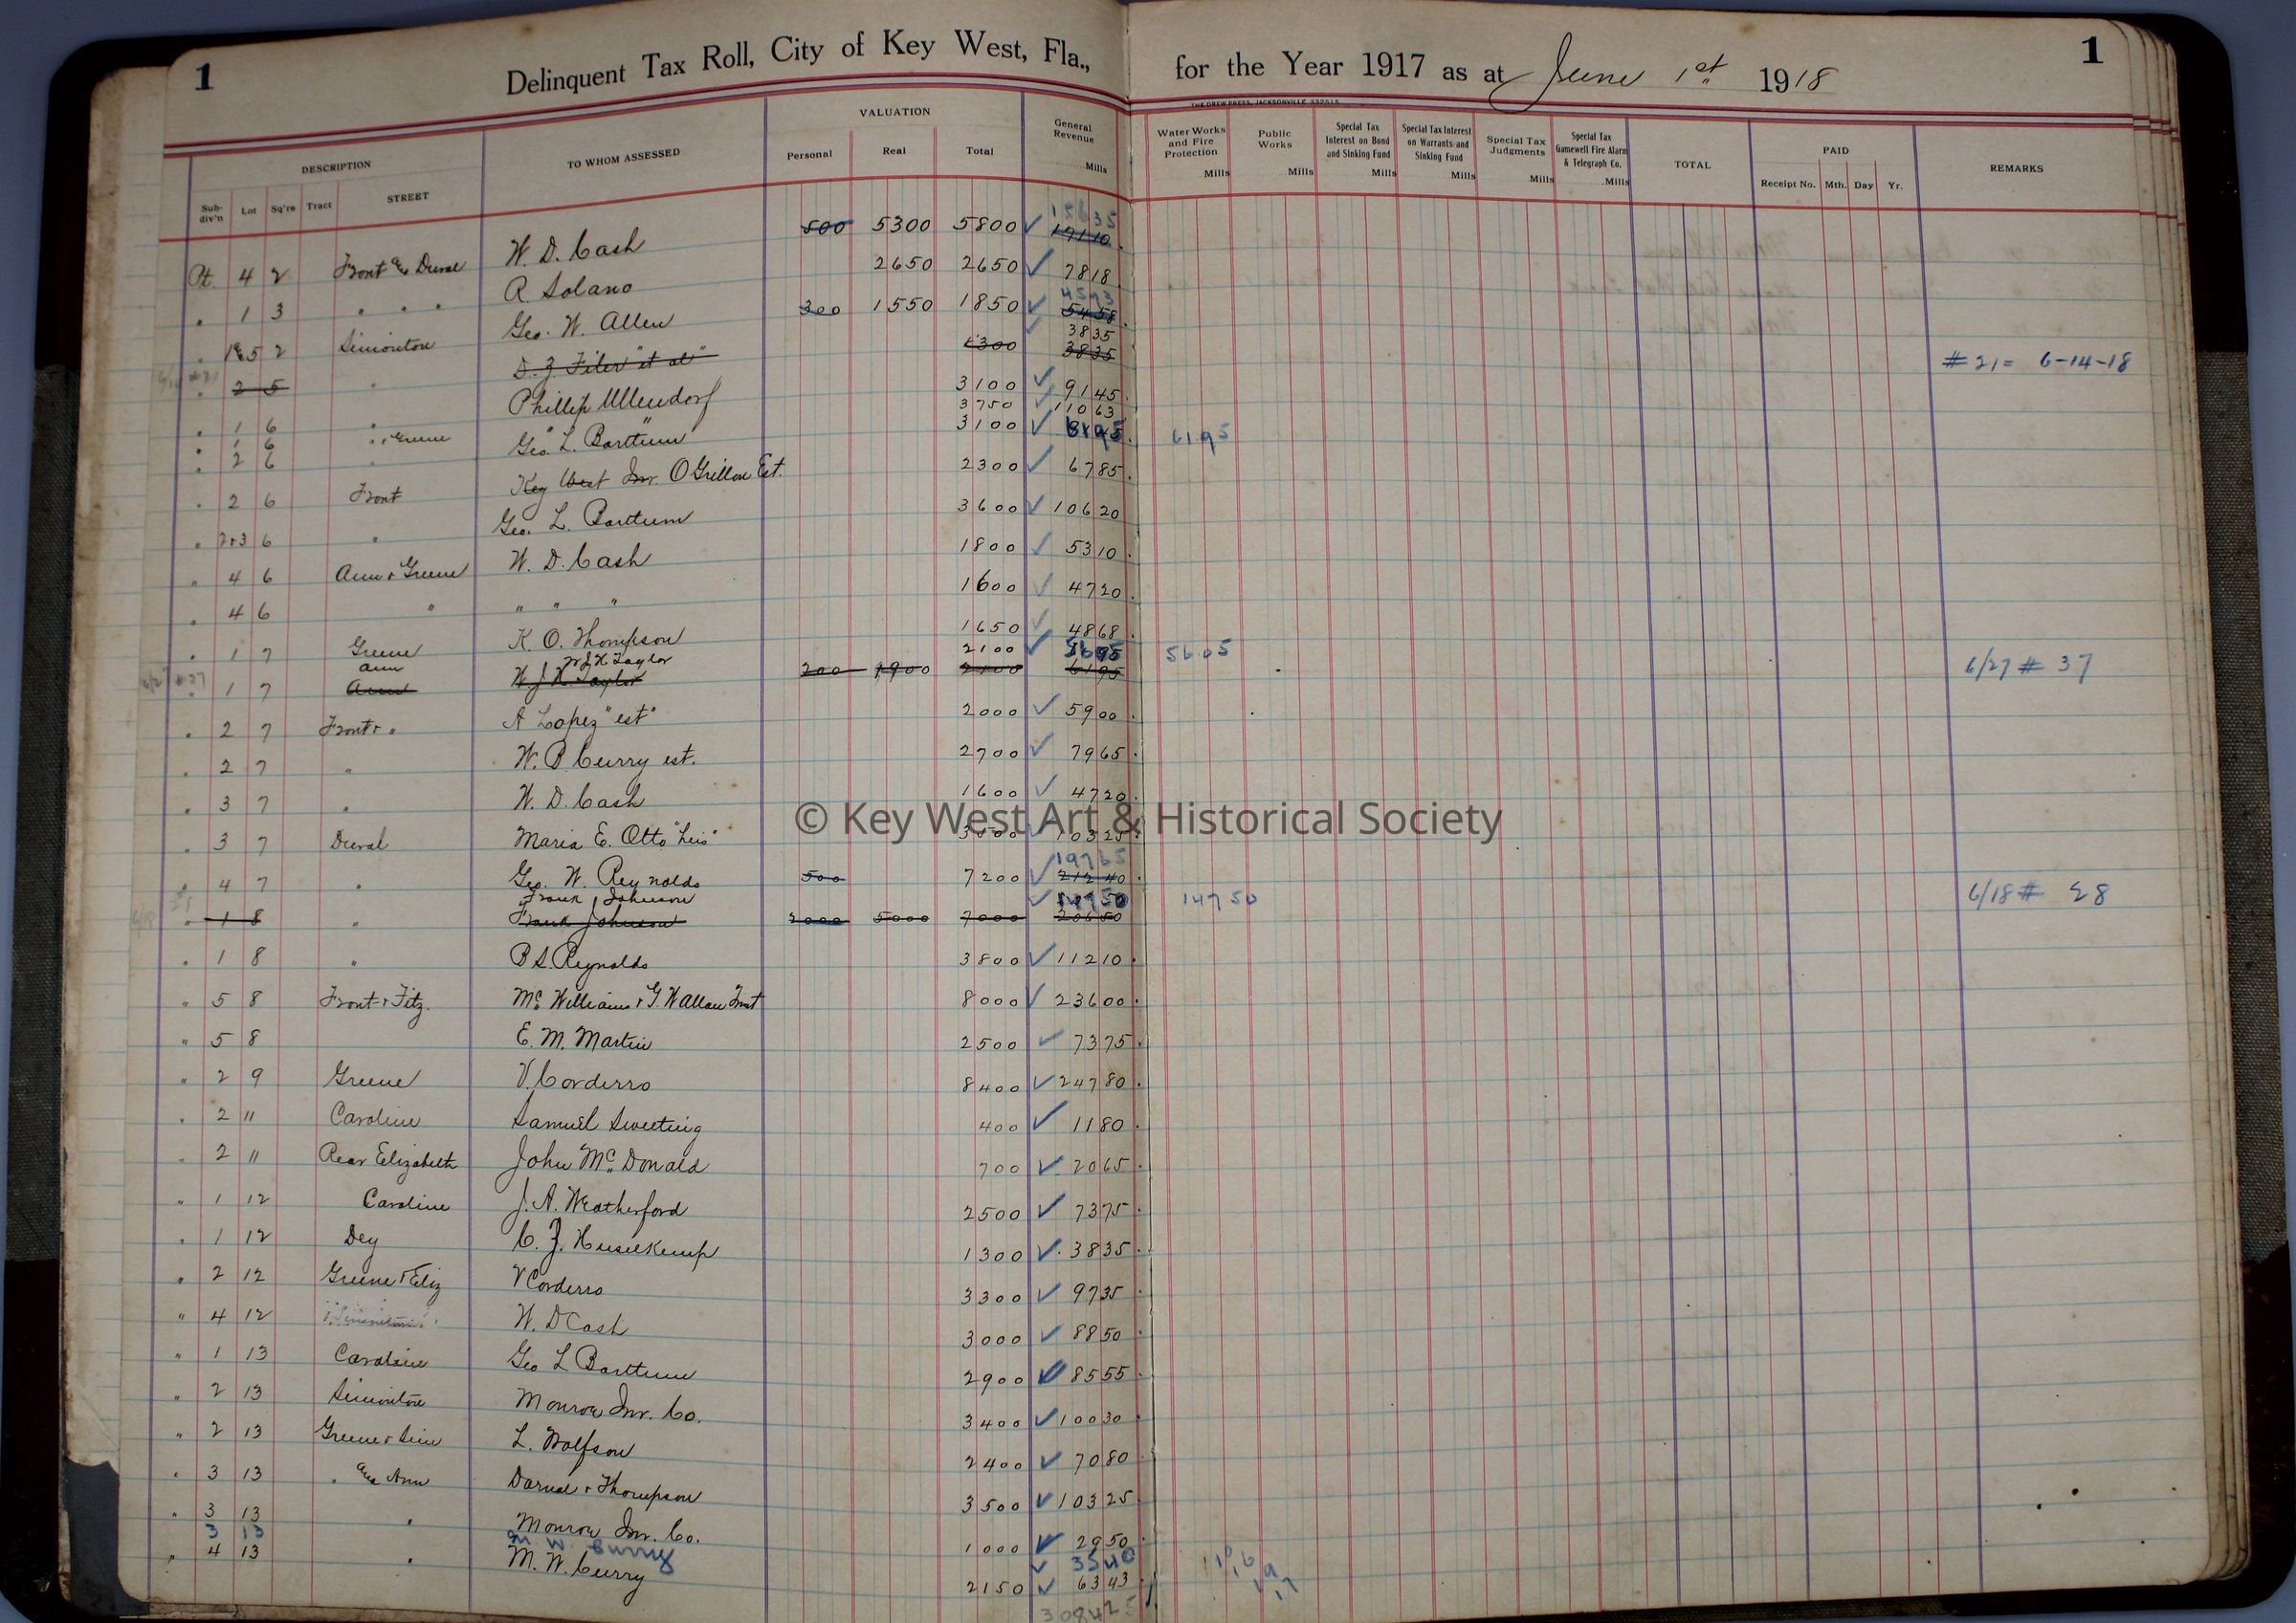 1 Delinquent Tax Roll, City of Key West, Fla., for the Year 1917 as at June 1st 1918 1
THE DREW PRESS, JACKSONVILLE
DESCRIPTION TO WHOM ASSESSED VALUATION General Revenue Mills Water Works and Fire Protection Mills Public Works Mills Special Tax Interest on Bond and Sinking Fund Mills Special Tax Interest on Warrants and Sinking Fund Mills Special Tax Judgments Mills Special Tax Gamewell Fire Alarm & Telegraph Co. Mills TOTAL PAID REMARKS
Sub-div'n Lot Sq're Tract STREET Personal Real Total Receipt No. Mth. Day Yr.
Pt. 4 2 Front & Duval W. D. Cash 500 5300 5800 156 35 171 10
" 1 3 " " " R. Solano 2650 2650 78 18
" 1&5 2 Simonton Geo. W. Allen 300 1550 1850 45 73 54 58
" 2 5 " D. Z. Filer "et al" 1300 38 35 38 35 # 21 = 6-14-18
" 1 6 " Phillip Ullendorf 3100 91 45
" 1 6 " & Greene " " 3750 110 63
" 2 6 " Geo. L. Bartlum 3100 61 95
" 2 6 Front Key West Inv. O Grillon Est. 2300 67 85
" 2&3 6 " Geo. L. Bartlum 3600 106 20
" 4 6 Ann & Greene W. D. Cash 1800 53 10
" 4 6 " " " " 1600 47 20
" 1 7 Greene K. O. Thompson 1650 48 68
Ann W J H Taylor 2100 56 05
" 1 7 Ann W. J. H. Taylor 200 1900 2100 61 95 6/27 # 37
" 2 7 Front & " A Lopez "est" 2000 59 00
" 2 7 " W. B. Curry est. 2700 79 65
" 3 7 " W. D. Cash 1600 47 20
© Key West Art & Historical Society
" 3 7 Duval Maria E. Otto "heis" 3500 103 25
" 4 7 " Geo. W. Reynolds 500 7200 197 65 212 40
Frank Johnson 147 50 147 50
" 1 8 " Frank Johnson 2000 5000 7000 206 50 6/18 # 28
" 1 8 " B S. Reynolds 3800 112 10
" 5 8 Front & Fitz. Mc Williams & G. W Allen Trust 8000 236 00
" 5 8 E. M. Martin 2500 73 75
" 2 9 Greene V. Corderro 8400 247 80
" 2 11 Caroline Samuel Sweeting 400 11 80
" 2 11 Rear Elizabeth John Mc Donald 700 20 65
" 1 12 Caroline J. A. Weatherford 2500 73 75
" 1 12 Dey 1300 38 35
" 2 12 Greene & Eliz V Corderro 3300 97 35
" 4 12 W. D Cash 3000 88 50
" 1 13 Caroline Geo L Bartlum 2900 85 55
" 2 13 Simonton Monroe Inv. Co. 3400 100 30
" 2 13 Greene & Sim L. Wolfson 2400 70 80
" 3 13 " and Ann & Thompson 3500 103 25
" 3 13 " Monroe Inv. Co. 1000 29 50
3 13 M W Curry 35 40
" 4 13 " M. W. Curry 2150 63 43